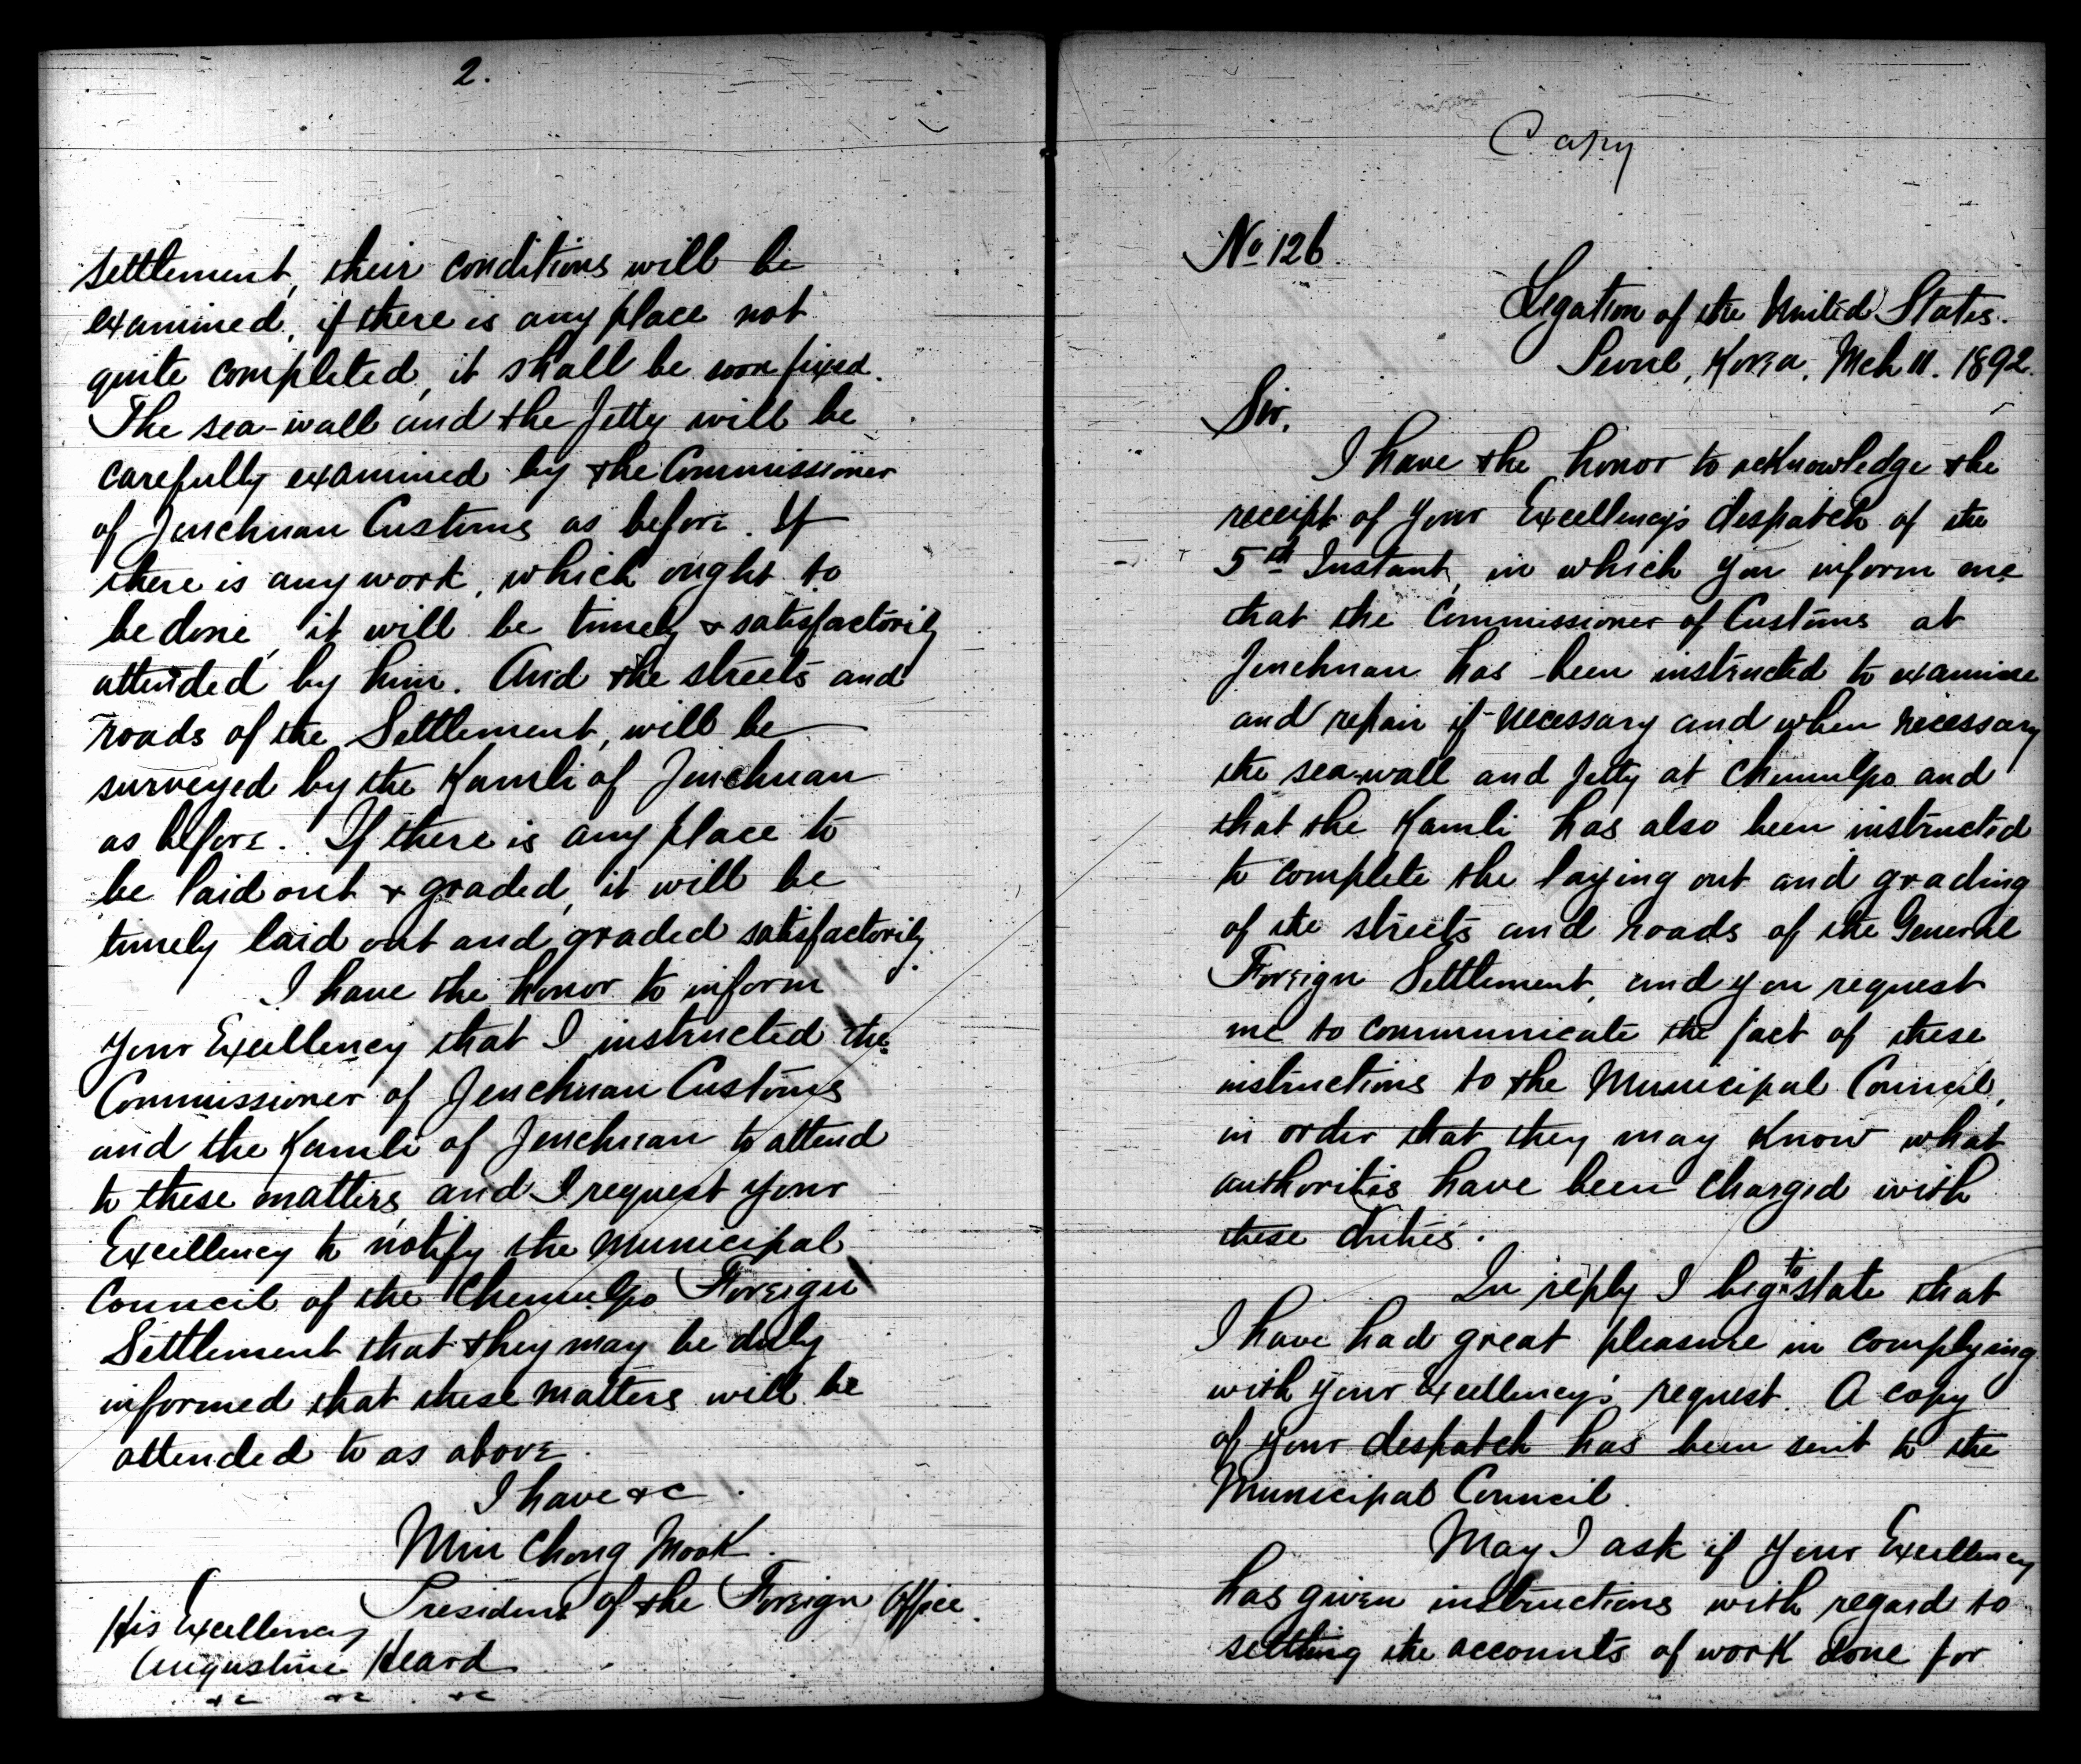 2.
settlement, their conditions will be
examined, if there is any place not
quite completed, it shall be soon fixed.
The sea-wall and the Jetty will be
carefully examined by the Commissioner
of Jenchuan Customs as before. If
there is any work, which ought to
be done, it will be timely & satisfactorily
attended by him. And the streets and
roads of the Settlement, will be
surveyed by the Kamli of Jenchuan
as before. If there is any place to
be laid out & graded, it will be
timely laid out and graded satisfactorily.
I have the honor to inform
Your Excellency that I instructed the
Commissioner of Jenchuan Customs
and the Kamli of Jenchuan to attend
to these matters, and I request your
Excellency to notify the Municipal
Council of the Chemulpo Foreign
Settlement that they may be duly
informed that these matters will be
attended to as above.
I have &c.
Min Chong Mook.
President of the Foreign Office.
His Excellency
Augustine Heard
&c &c. &c
Copy
No 126.
Legation of the United States.
Seoul, Korea, Mch 11. 1892.
Sir,
I have the honor to acknowledge the
receipt of Your Excellency's despatch of the
5th Instant, in which you inform me
that the Commissioner of Customs at
Jenchuan has been instructed to examine
and repair if necessary and when necessary
the sea-wall and Jetty at Chemulpo and
that the Kamli has also been instructed
to complete the laying out and grading
of the streets and roads of the General
Foreign Settlement, and you request
me to communicate the fact of these
instructions to the Municipal Council,
in order that they may know what
authorities have been charged with
these duties.
In reply I beg to state that
I have had great pleasure in complying
with Your Excellency's request. A copy
of your despatch has been sent to the
Municipal Council.
May I ask if Your Excellency
has given instructions with regard to
settling the accounts of work done for